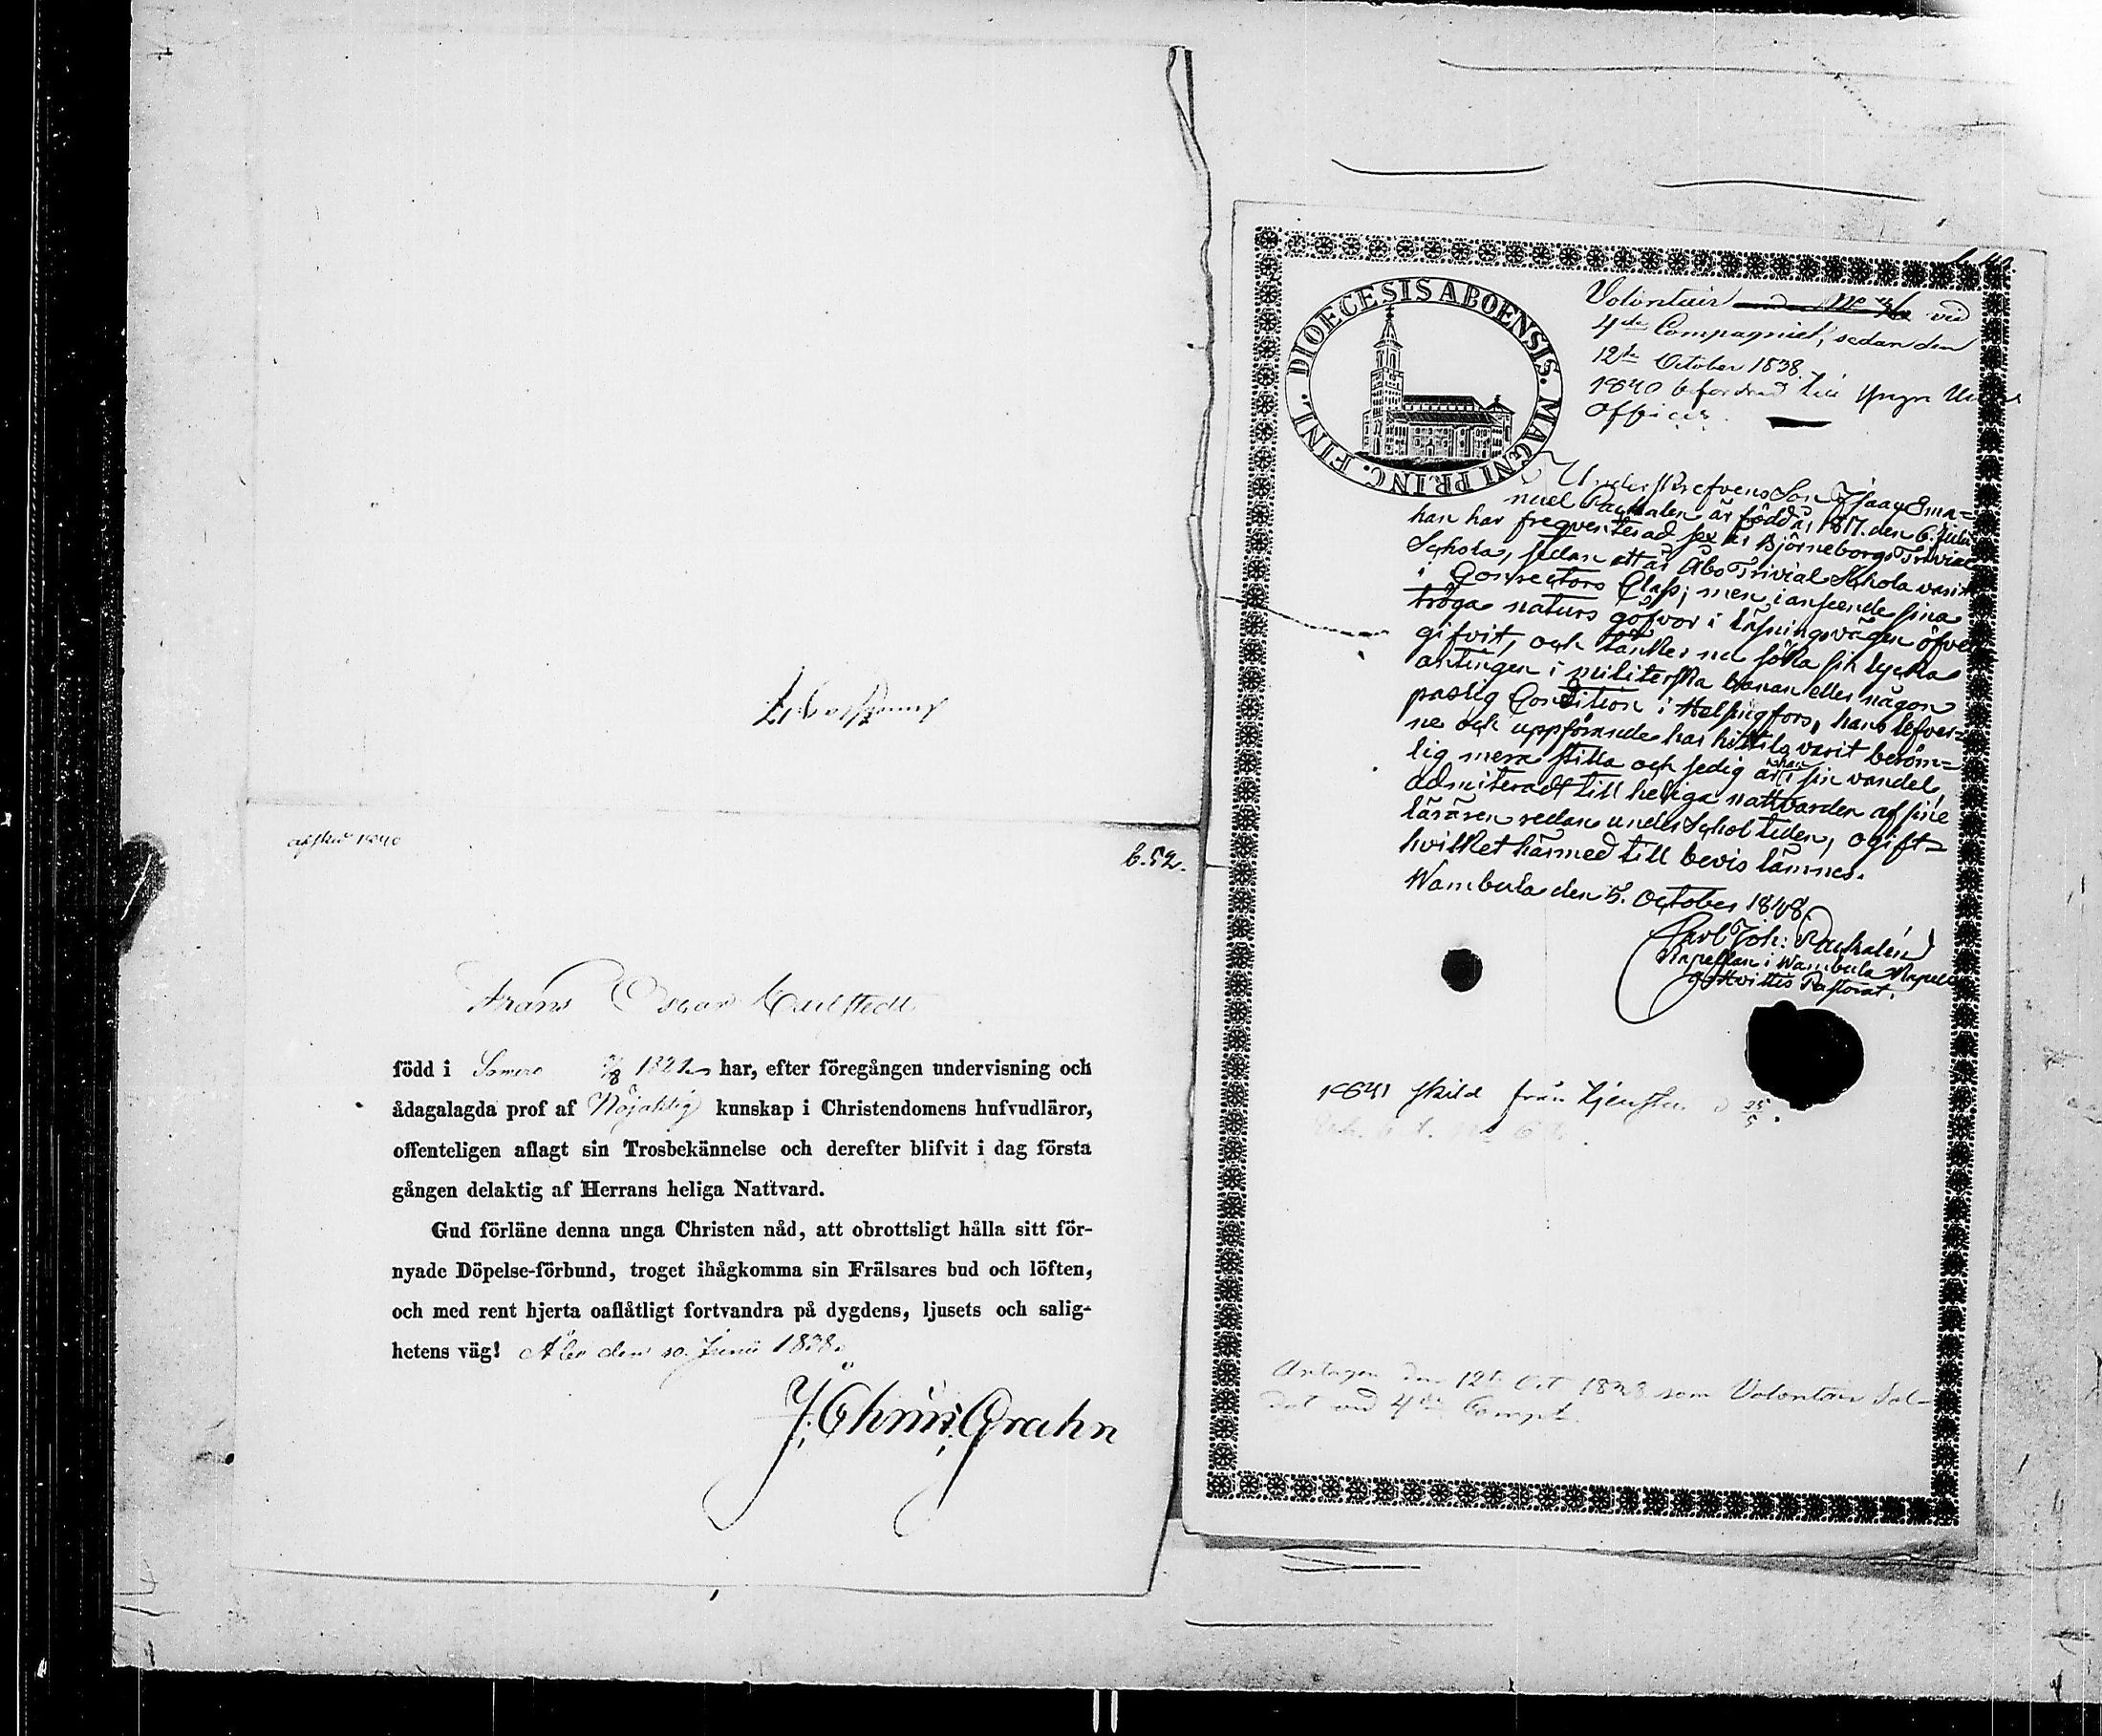 afsked 1840
b. 52.
Frans Oscar Carlstedt
född i Somero 1821 har, efter föregången undervisning och
ådagalagda prof af Nöjaktig kunskap i Christendomens hufvudläror,
offenteligen aflagt sin Trosbekännelse och derefter blifvit i dag första
gången delaktig af Herrans heliga Nattvard.
Gud förläne denna unga Christen nåd, att obrottsligt hålla sitt för-
nyade Döpelse-förbund, troget ihågkomma sin Frälsares bud och löften,
och med rent hjerta oaflåtligt fortvandra på dygdens, ljusets och salig-
hetens väg! Åbo den 10. Junii 1838.
J. Chr: Grahn
DIOECESIS ABOENSIS. MAGNI PRINC. FINL.
Volontair vid
4de Compagniet, sedan den
12te October 1838.
1840 befordrad till Yngre Under
Officer.
Underskrefvens Son Isaac Ema=
nuel Pauhalen är född år 1817. den 6. Julii
han har freqventerad sex år Björneborgs Trivial
Schola, sedan ett år Åbo Trivial Schola varit
i Conrectors Class; men i anseende sina
tröga naturs gofvor i läsningsvägen öfver
gifvit, och tänker nu söka sin lycka
antingen i militerska banan eller någon
paslig Condition i Helsingfors, hans lefver=
ne och uppförande har hittils varit beröm=
lig mera stilla och sedig är han i sin vandel,
admiteradt till heliga nattvarden af sine
lärären redan under Schol tiden, ogift=
hvilket härmed till bevis lämnes.
Wambula den 5. October 1838.
Carl Joh: Pauhalén
Kapellan i Wambula Kapell
af Hvittis Pastorat.
1841 skild från tjensten d 25/5.
Antagen den 12te Oct 1838 som Volontair Sol-
dat vid 4de Comp.